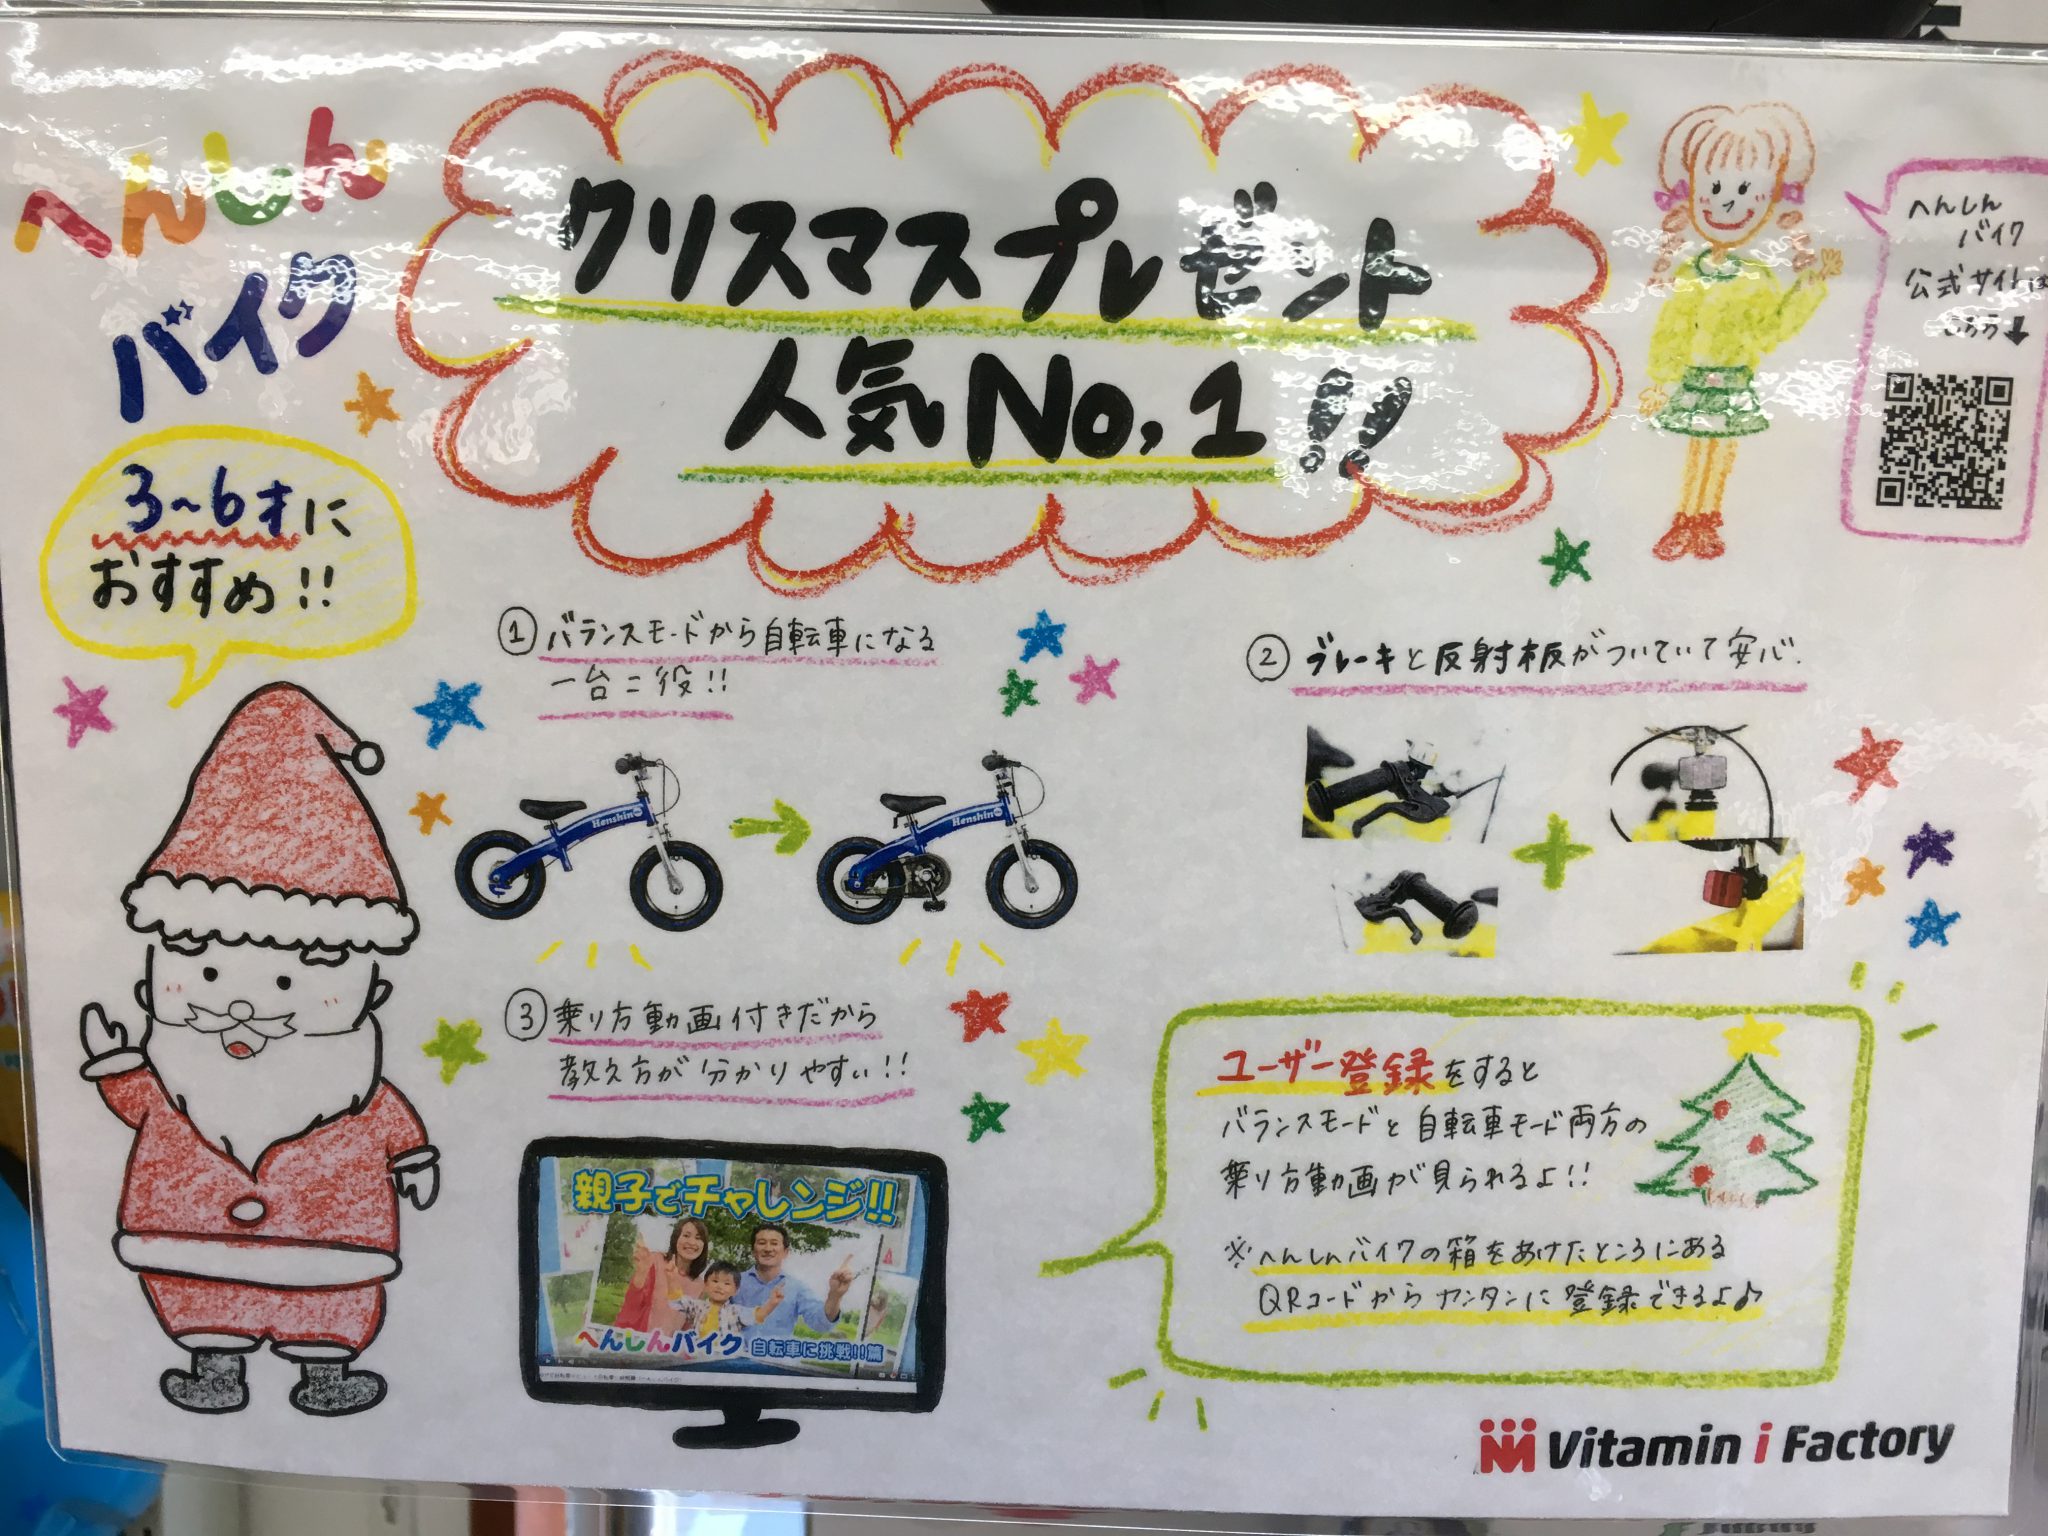 へんしん
バイク
クリスマスプレゼント
人気No,1!!
へんしん
バイク
公式サイトは
こちら↓
3~6才に
おすすめ!!
①バランスモードから自転車になる
一台二役!!
Henshin
Henshin
②ブレーキと反射板がついていて安心.
③乗り方動画付きだから
教え方が分かりやすい!!
親子でチャレンジ!!
へんしんバイク 自転車に挑戦!!篇
ユーザー登録をすると
バランスモードと自転車モード両方の
乗り方動画が見られるよ!!
※へんしんバイクの箱をあけたところにある
QRコードからカンタンに登録できるよ♪
Vitamin i Factory